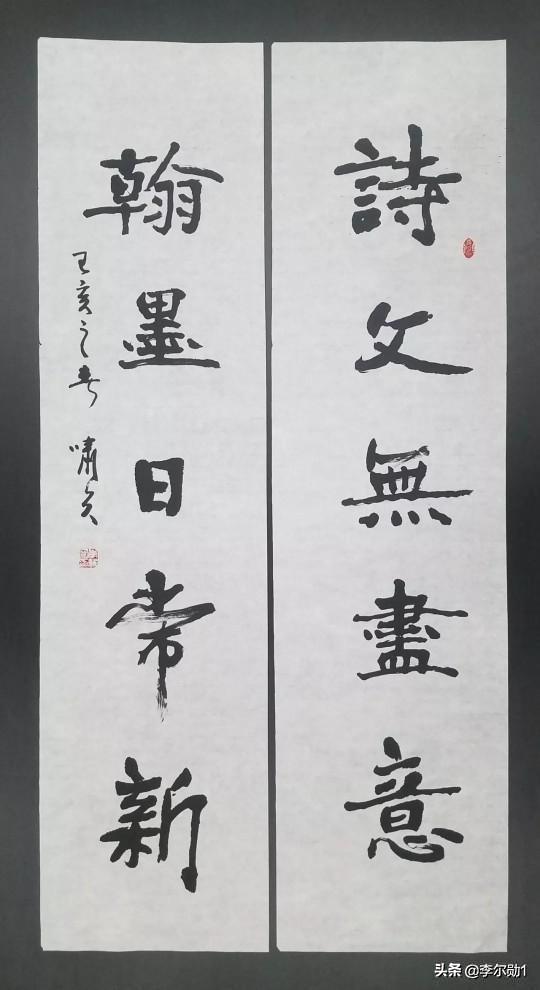 詩文無盡意
翰墨日常新
亥之春 嘯
头条 @李尔勋1